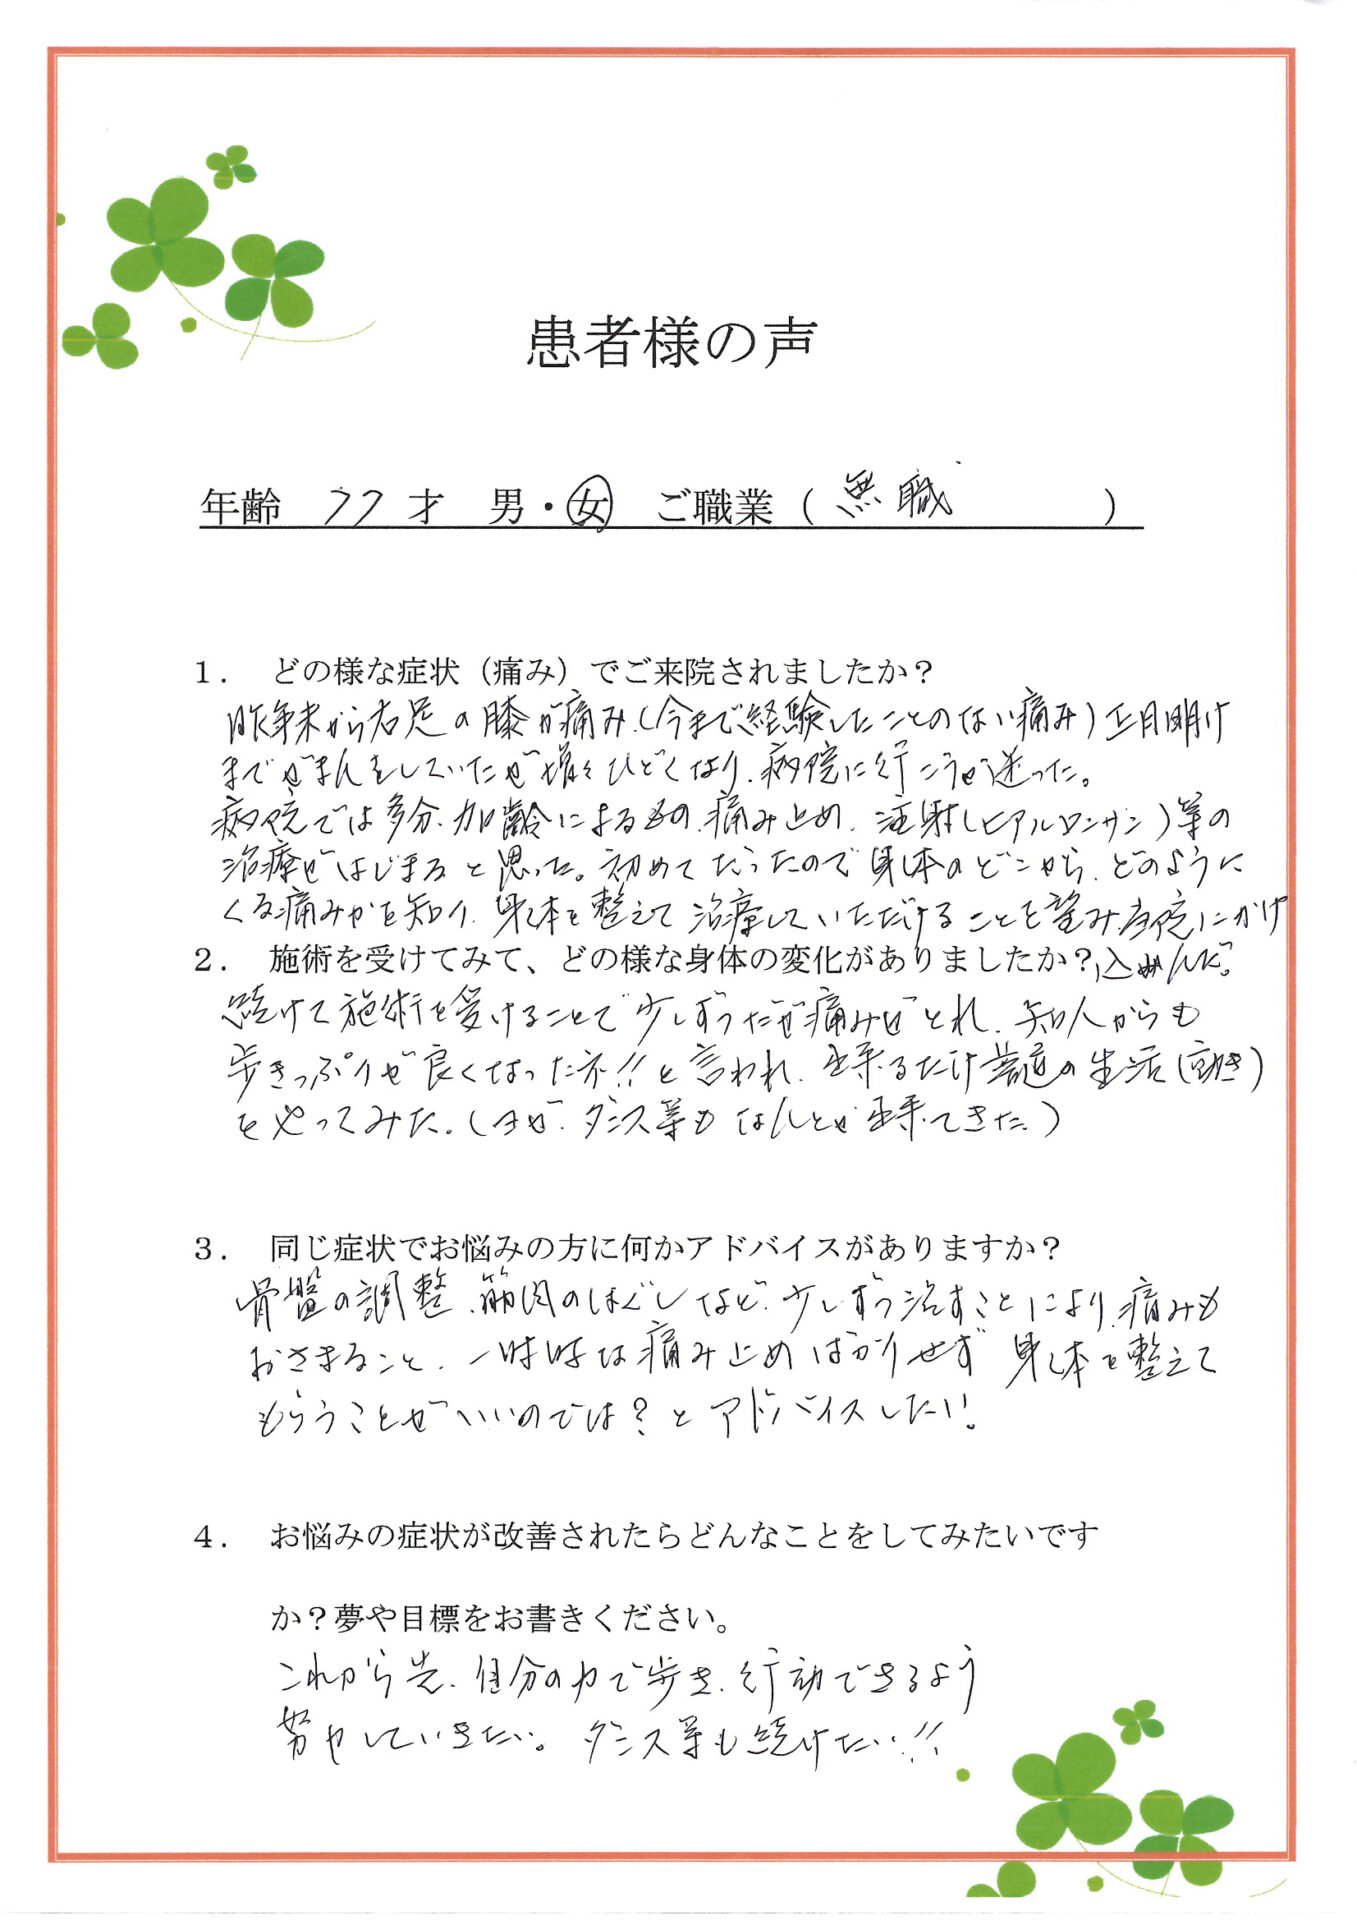 患者様の声
年齢 77 才 男・女 ご職業（ 無職 ）
１． どの様な症状（痛み）でご来院されましたか？
昨年末から右足の膝が痛み、（今まで経験したことのない痛み）正月明け
までがまんをしていたが増々ひどくなり、病院に行こうか迷った。
病院では多分、加齢によるもの、痛み止め、注射（ヒアルロンサン）等の
治療がはじまると思った。初めてだったので身体のどこから、どのように
くる痛みかを知り、身体を整えて治療していただけることを望み、当院にかけ
込んだ。
２． 施術を受けてみて、どの様な身体の変化がありましたか？
続けて施術を受けることで少しずつだが痛みがとれ、知人からも
歩きっぷりが良くなったネ!!と言われ、出来るだけ普通の生活（動き）
をやってみた。（ヨガ、ダンス等もなんとか出来てきた。）
３． 同じ症状でお悩みの方に何かアドバイスがありますか？
骨盤の調整、筋肉のほぐしなど、少しずつ治すことにより、痛みも
おさまること、一時時な痛み止めばかりせず 身体を整えて
もらうことがいいのでは？とアドバイスしたい。
４． お悩みの症状が改善されたらどんなことをしてみたいです
か？夢や目標をお書きください。
これから先、自分の力で歩き、行動できるよう
努力していきたい。ダンス等も続けたい!!